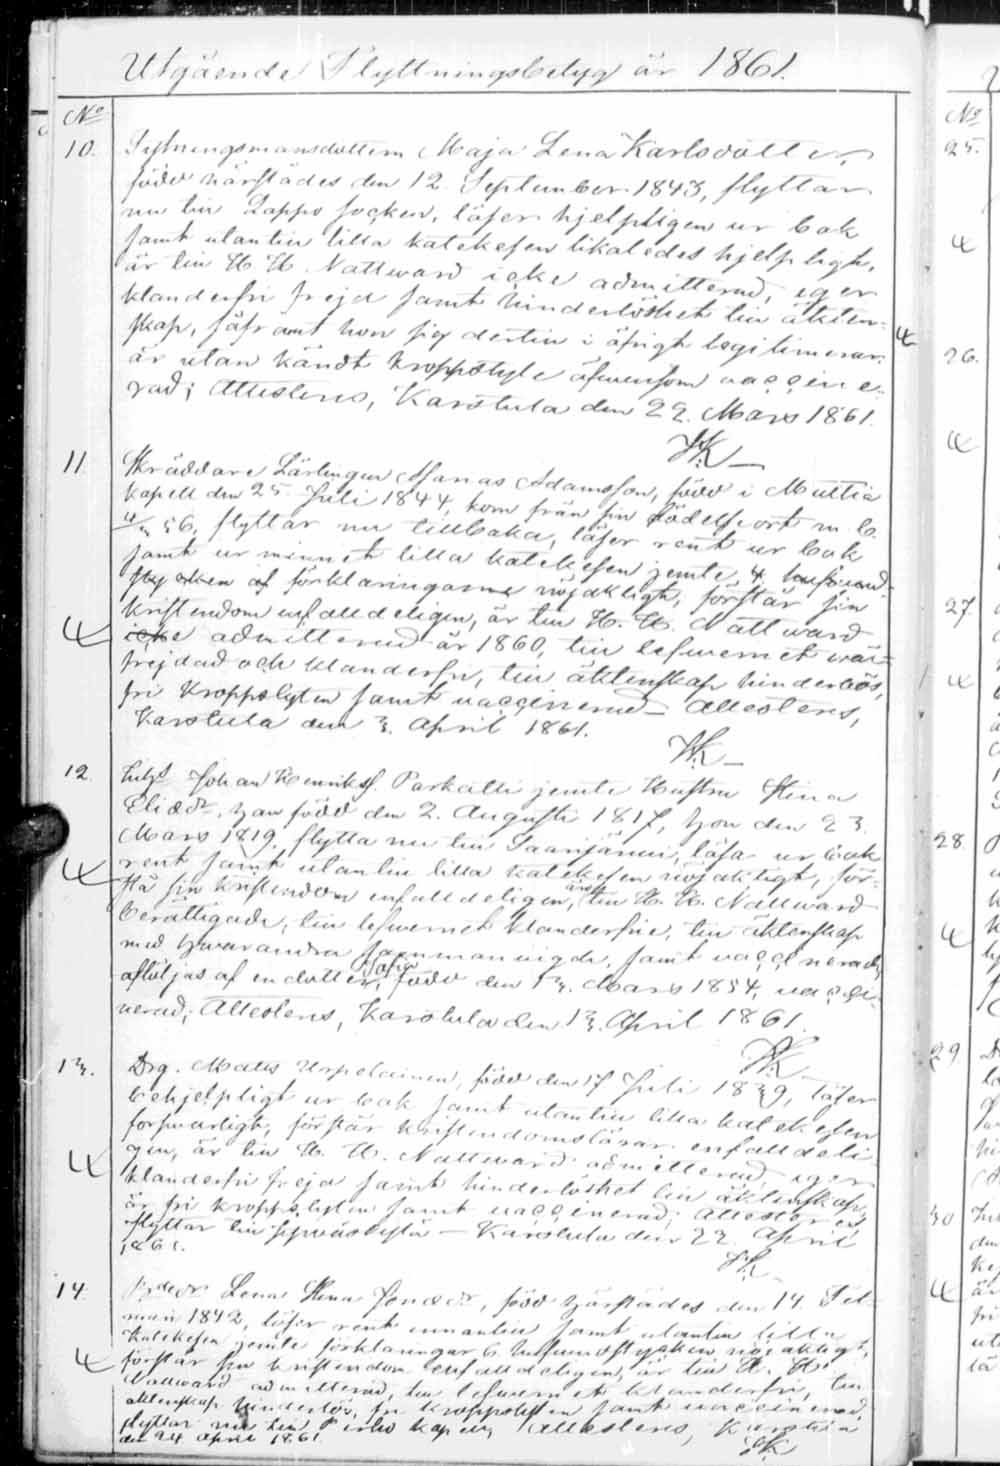 Utgående Flyttningsbetyg år 1861.
No
10. Sytningsmansdottern Maja Lena Karlsdotter,
född härstädes den 12. September 1843, flyttar
nu till Lappo socken, läser hjelpligen ur bok
samt utantill lilla katekesen likaledes hjelpligt,
är till H. H. Nattward icke admitterad, eger
klanderfri frejd samt hinderlöshet till äkten-
skap, såframt hon sig dertill i öfrigt legitimerar,
är utan kändt kroppslyte äfwensom vaccine-
rad; Attesteras, Karstula den 22. Mars 1861.
11. Skräddare Lärlingen Manas Adamsson, född i Multia
kapell den 25 Juli 1844, kom från sin födelseort m. b.
56, flyttar nu tillbaka, läser rent ur bok
samt ur minnet lilla katekesen jemte 4
stycken af förklaringarne nöjaktigt, förstår sin
kristendom enfalldeligen, är till H. H. Nattward
icke admitterad år 1860, till lefwernet wäl-
frejdad och klanderfri, till äktenskap hinderlös,
fri kroppslyten samt vaccinerad – Attesteras,
Karstula den 3. April 1861.
12. Johan Henrikss. Parkatti jemte Hustru Stina
Eliædr, han född den 2. Augusti 1817, hon den 23.
Mars 1819, flytta nu till Saarijärwi, läsa ur bok
rent samt utantill lilla katekesen nöjaktigt, för-
stå sin kristendom enfalldeligen, äro till H. H. Nattward
berättigade, till lefwernet klanderfrie, till äktenskap
med hwarandra sammanvigde, samt vaccinerade,
åtföljas af en dotter, Sofia född den 13. Mars 1854, vacci-
nerad; Attesteras, Karstula den 13. April 1861.
13. Drg. Matts Urpelainen, född den 17 Juli 1839, läser
behjelpligt ur bok samt utantill lilla katekesen
forswarligt, förstår kristendomsläran enfalldeli-
gen, är till H. H. Nattward admitterad, eger
klanderfri frejd samt hinderlöshet till äktenskap,
är fri kroppslyten samt vaccinerad; Attesteras
flyttar till – Karstula den 22. April
1861.
14. Lena Stina Jonædr, född härstädes den 14. Feb-
ruari 1842, läser rent innantill samt utantill lilla
katekesen jemte förklaringar 6. hufwudstycken nöjaktigt,
förstår sin kristendom enfalldeligen, är till H. H.
Nattward admitterad, till lefwernet klanderfri, till
äktenskap hinderlös, fri kroppslyten samt vaccinerad,
flyttar nu till kapell, Attesteras, Karstula
den 24 April 1861.
No
25.
26.
27.
28.
29
30